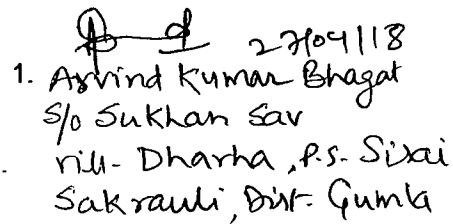 27/04/18
1. Arvind Kumar Bhagat
S/o Sukhan Sav
vill- Dharha, P.S. Sisai
Sakrauli, Dist- Gumla